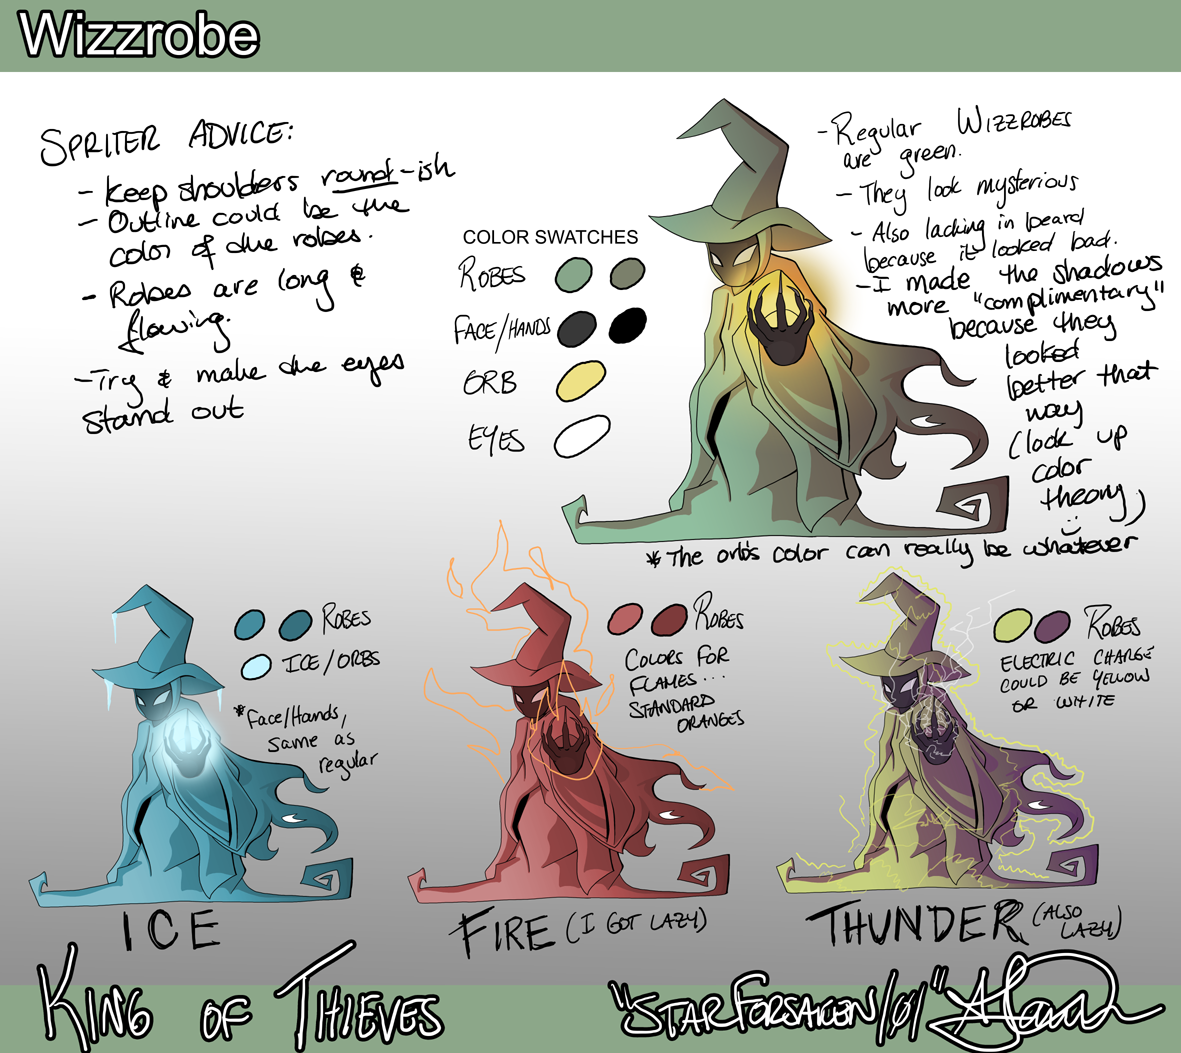 Wizzrobe
SPRITER ADVICE:
- Keep shoulders round-ish
- Outline could be the
color of the robes.
- Robes are long &
flowing.
- Try & make the eyes
stand out
COLOR SWATCHES
ROBES
FACE/HANDS
ORB
EYES
- Regular Wizzrobes
are green.
- They look mysterious
- Also lacking in beard
because it looked bad.
- I made the shadows
more "complimentary"
because they
looked
better that
way
(look up
color
theory)
* The orb's color can really be whatever
ROBES
ICE/ORBS
*Face/Hands,
same as
regular
ICE
ROBES
COLORS FOR
FLAMES...
STANDARD
ORANGES
FIRE (I GOT LAZY)
ROBES
ELECTRIC CHARGE
COULD BE YELLOW
OR WHITE
THUNDER (ALSO
LAZY)
KING OF THIEVES
"STARFORSAKEN/01"